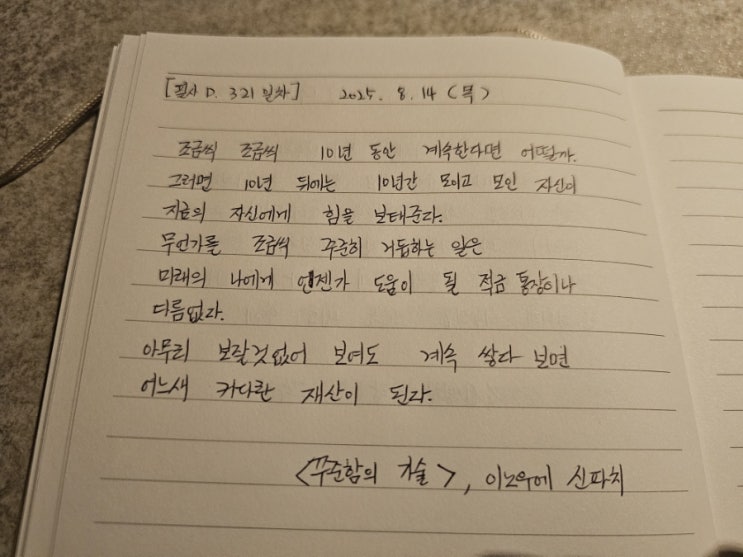 [필사 D. 321일차] 2025. 8. 14 (목)
조금씩 조금씩 10년 동안 계속한다면 어떨까.
그러면 10년 뒤에는 10년간 모이고 모인 자신이
지금의 자신에게 힘을 보태준다.
무언가를 조금씩 꾸준히 거듭하는 일은
미래의 나에게 언젠가 도움이 될 적금 통장이나
다름없다.
아무리 보잘것없어 보여도 계속 쌓다 보면
어느새 커다란 재산이 된다.
<꾸준함의 기술>, 이노우에 신파치